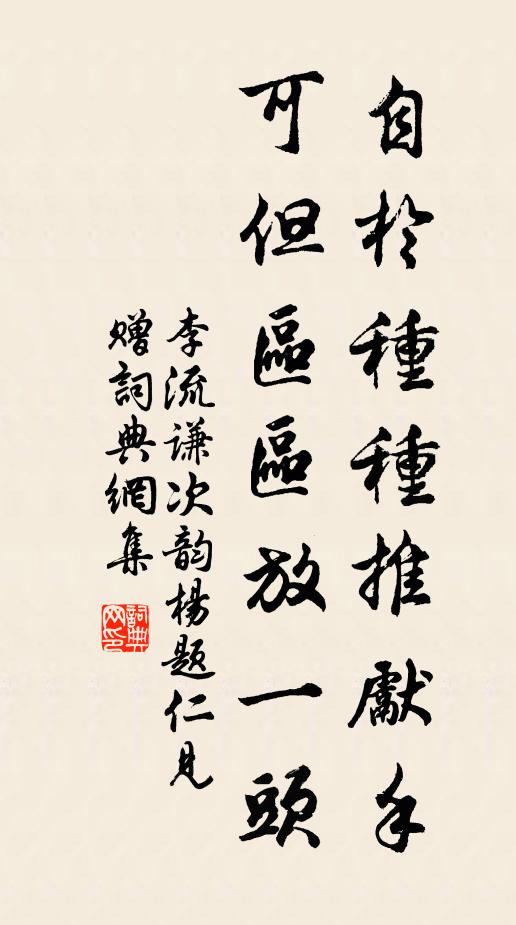 自於種種推獻手
可但區區放一頭
李流谦次韵杨题仁见
贈詞典網集
詞典网印